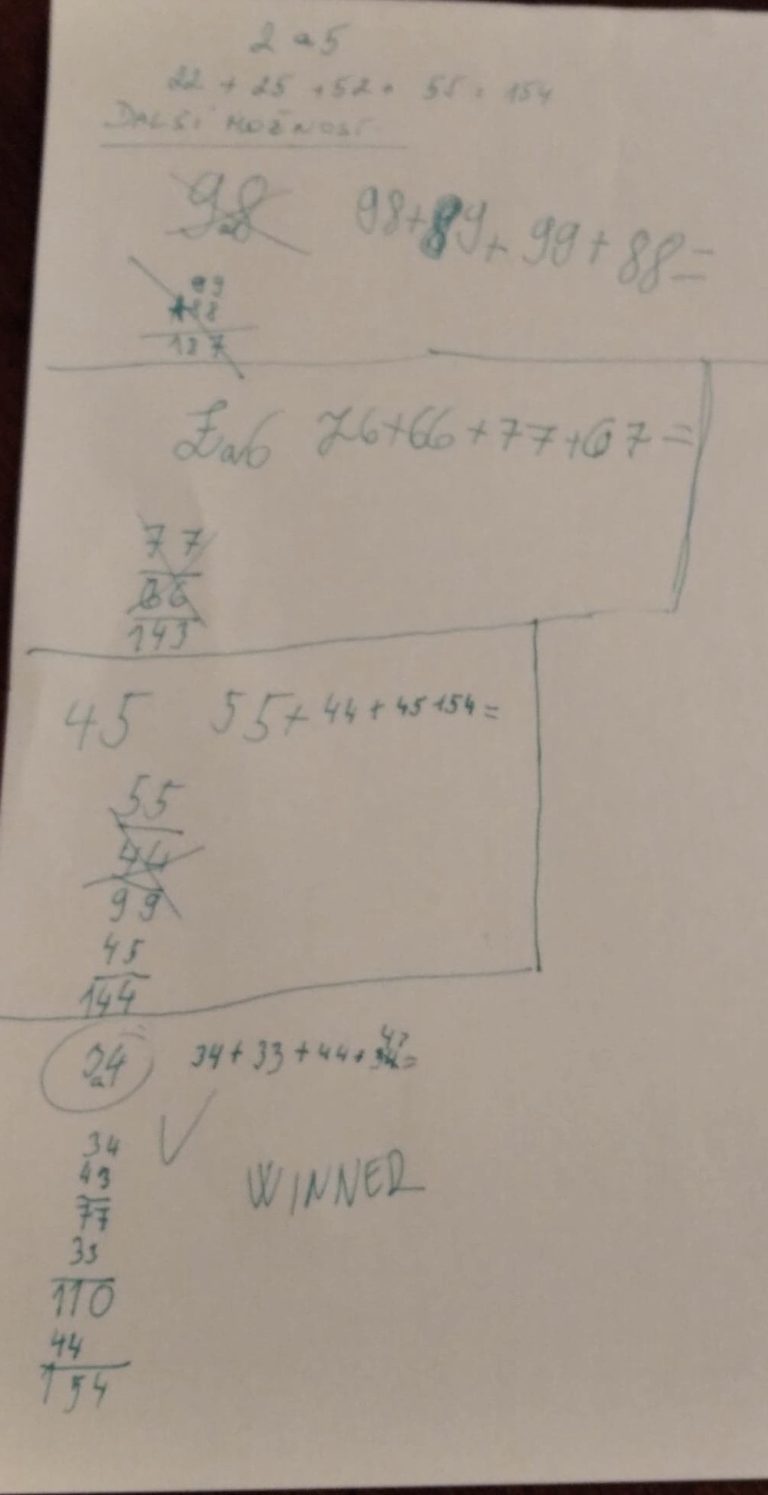 2 a 5
22 + 25 + 52 + 55 = 154
DALŠÍ MOŽNOST
9 a 8 98+89+99+88=
99
188
187
7 a 6 76+66+77+67=
77
66
143
45 55+44+45 154=
55
44
99
45
144
3 a 4 34+33+44+ 43=
34
43
77
33
110
44
154
WINNER